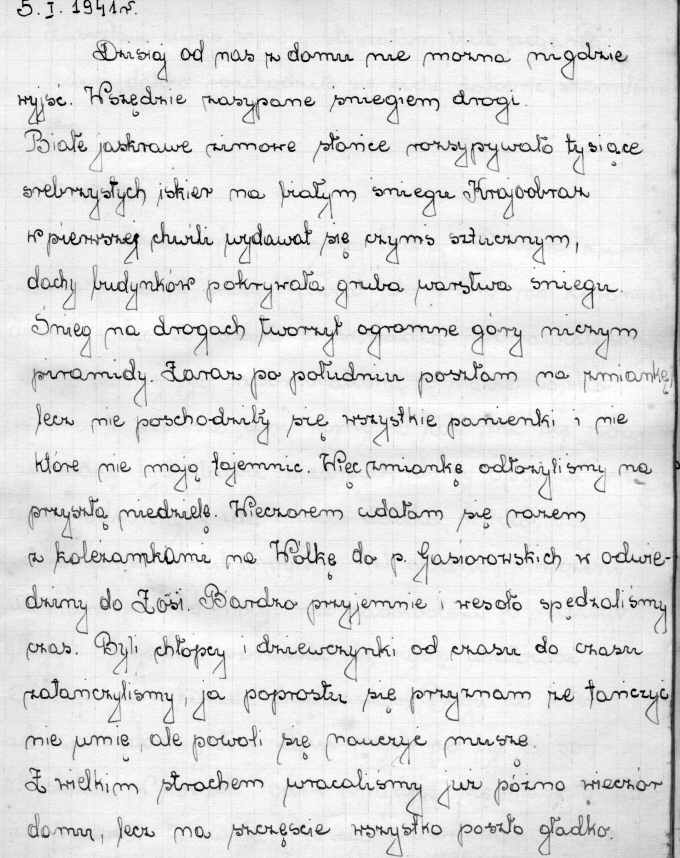 5. I. 1941 r.
Dzisiaj od nas z domu nie można nigdzie
wyjść. Wszędzie zasypane sniegiem drogi.
Białe jaskrawe zimowe słońce rozsypywało tysiące
srebrzystych iskier na białym sniegu Krajoobraz
w pierwszej chwili wydawał się czyms sztucznym,
dachy budynków pokrywała gruba warstwa sniegu.
Śnieg na drogach tworzył ogromne góry niczym
piramidy. Zaraz po południu poszłam na zmiankę,
lecz nie poschodziły się wszystkie panienki i nie
które nie mają tajemnic. Więc zmiankę odłozylismy na
przyszłą niedzielę. Wieczorem udałam się razem
z kolezankami na Wólkę do p. Gasiorowskich w odwie-
dziny do Zosi. Bardzo przyjemnie i wesoło spędzalismy
czas. Byli chłopcy i dziewczynki od czasu do czasu
zatańczylismy, ja poprostu się przyznam ze tańczyć
nie umię, ale powoli się nauczyć muszę.
Z wielkim strachem wracalismy juz pózno wieczór
domu, lecz na szczęscie wszystko poszło gładko.